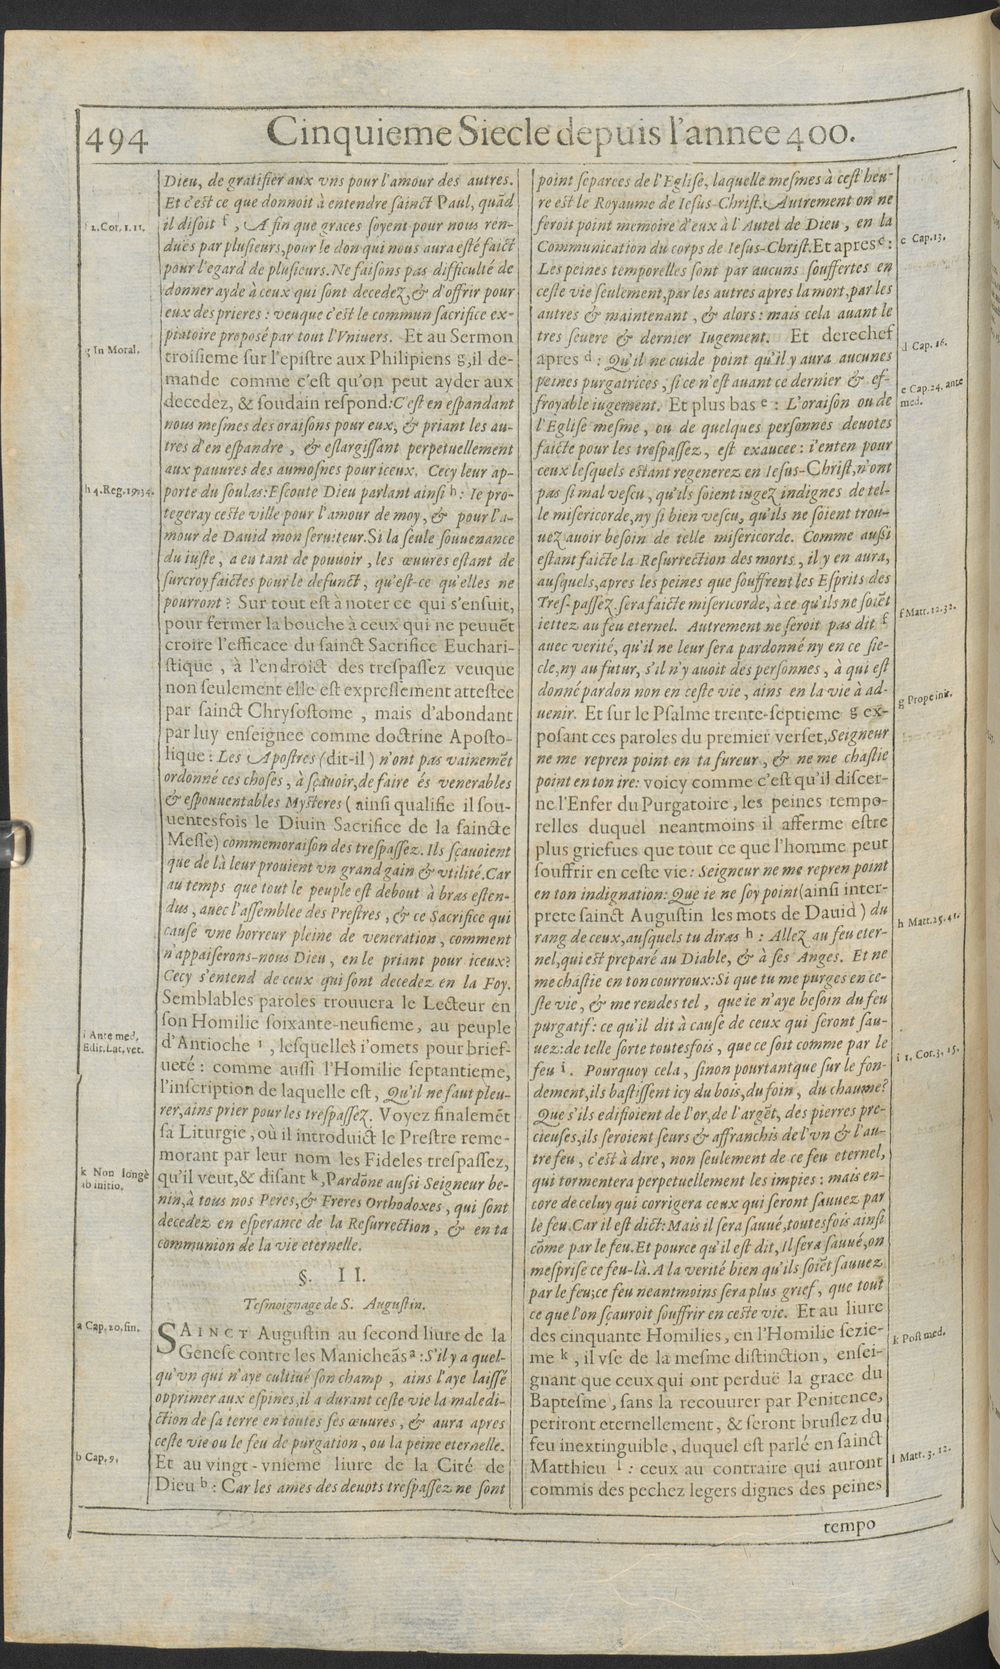 494
Cinquieme Siecle depuis l'annee 400.
Dieu, de gratifier aux vns pour l'amour des autres.
Et c'est ce que donnoit à entendre sainct Paul, quãd
il disoit f, A fin que graces soyent pour nous ren-
dues par plusieurs, pour le don qui nous aura esté faict
pour l'egard de plusieurs. Ne faisons pas difficulté de
donner ayde à ceux qui sont decedez, & d'offrir pour
eux des prieres : veuque c'est le commun sacrifice ex-
piatoire proposé par tout l'Vniuers. Et au Sermon
troisieme sur l'epistre aux Philipiens g, il de-
mande comme c'est qu'on peut ayder aux
decedez, & soudain respond: C'est en espandant
nous mesmes des oraisons pour eux, & priant les au-
tres d'en espandre, & eslargissant perpetuellement
aux pauures des aumosnes pour iceux. Cecy leur ap-
porte du soulas: Escoute Dieu parlant ainsi h: Ie pro-
tegeray ceste ville pour l'amour de moy, & pour l'a-
mour de Dauid mon seruiteur. Si la seule souuenance
du iuste, a eu tant de pouuoir, les œuures estant de
surcroy faictes pour le defunct, qu'est-ce qu'elles ne
pourront? Sur tout est à noter ce qui s'ensuit,
pour fermer la bouche à ceux qui ne peuuẽt
croire l'efficace du sainct Sacrifice Euchari-
stique, à l'endroict des trespassez veuque
non seulement elle est expressement attestee
par sainct Chrysostome, mais d'abondant
par luy enseignee comme doctrine Aposto-
lique : Les Apostres (dit-il) n'ont pas vainemẽt
ordonné ces choses, à sçauoir, de faire és venerables
& espouuentables Mysteres (ainsi qualifie il sou-
uentesfois le Diuin Sacrifice de la saincte
Messe) commemoraison des trespassez. Ils sçauoient
que de là leur prouient vn grand gain & vtilité. Car
au temps que tout le peuple est debout à bras esten-
dus, auec l'assemblee des Prestres, & ce Sacrifice qui
cause vne horreur pleine de veneration, comment
n'appaiserons-nous Dieu, en le priant pour iceux?
Cecy s'entend de ceux qui sont decedez en la Foy.
Semblables paroles trouuera le Lecteur en
son Homilie soixante-neufieme, au peuple
d'Antioche i, lesquelles i'omets pour brief-
ueté : comme aussi l'Homilie septantieme,
l'inscription de laquelle est, Qu'il ne faut pleu-
rer, ains prier pour les trespassez. Voyez finalemẽt
sa Liturgie, où il introduict le Prestre reme-
morant par leur nom les Fideles trespassez,
qu'il veut, & disant k, Pardõne aussi Seigneur be-
nin, à tous nos Peres, & Freres Orthodoxes, qui sont
decedez en esperance de la Resurrection, & en ta
communion de la vie eternelle.
§. II.
Tesmoignage de S. Augustin.
SAINCT Augustin au second liure de la
Genese contre les Manicheãs a : S'il y a quel-
qu'vn qui n'aye cultiué son champ, ains l'aye laissé
opprimer aux espines, il a durant ceste vie la maledi-
ction de sa terre en toutes ses œuures, & aura apres
ceste vie ou le feu de purgation, ou la peine eternelle.
Et au vingt-vnieme liure de la Cité de
Dieu b : Car les ames des deuots trespassez ne sont
f 2. Cor. 1. 11.
g In Moral.
h 4. Reg. 19. 34.
i Ante med,
Edit. Lat, vet.
k Non longè
ab initio.
a Cap, 20. fin.
b Cap, 9.
point separees de l'Eglise, laquelle mesmes à cest heu-
re est le Royaume de Iesus-Christ. Autrement on ne
feroit point memoire d'eux à l'Autel de Dieu, en la
Communication du corps de Iesus-Christ. Et apres c:
Les peines temporelles sont par aucuns souffertes en
ceste vie seulement, par les autres apres la mort, par les
autres & maintenant, & alors : mais cela auant le
tres seuere & dernier Iugement. Et derechef
apres d : Qu'il ne cuide point qu'il y aura aucunes
peines purgatrices, si ce n'est auant ce dernier & ef-
froyable iugement. Et plus bas e : L'oraison ou de
l'Eglise mesme, ou de quelques personnes deuotes
faicte pour les trespassez, est exaucee : i'enten pour
ceux lesquels estant regenerez en Iesus-Christ, n'ont
pas si mal vescu, qu'ils soient iugez indignes de tel-
le misericorde, ny si bien vescu, qu'ils ne soient trou-
uez auoir besoin de telle misericorde. Comme aussi
estant faicte la Resurrection des morts, il y en aura,
ausquels, apres les peines que souffrent les Esprits des
Tres-passez, sera faicte misericorde, à ce qu'ils ne soiẽt
iettez au feu eternel. Autrement ne seroit pas dit f
auec verité, qu'il ne leur sera pardonné ny en ce sie-
cle, ny au futur, s'il n'y auoit des personnes, à qui est
donné pardon non en ceste vie, ains en la vie à ad-
uenir. Et sur le Psalme trente-septieme g ex-
posant ces paroles du premier verset, Seigneur
ne me repren point en ta fureur, & ne me chastie
point en ton ire: voicy comme c'est qu'il discer-
ne l'Enfer du Purgatoire, les peines tempo-
relles duquel neantmoins il afferme estre
plus griefues que tout ce que l'homme peut
souffrir en ceste vie : Seigneur ne me repren point
en ton indignation: Que ie ne soy point (ainsi inter-
prete sainct Augustin les mots de Dauid) du
rang de ceux, ausquels tu diras h : Allez au feu eter-
nel, qui est preparé au Diable, & à ses Anges. Et ne
me chastie en ton courroux: Si que tu me purges en ce-
ste vie, & me rendes tel, que ie n'aye besoin du feu
purgatif: ce qu'il dit à cause de ceux qui seront sau-
uez: de telle sorte toutesfois, que ce soit comme par le
feu i. Pourquoy cela, sinon pourtant que sur le fon-
dement, ils bastissent icy du bois, du foin, du chaume?
Que s'ils edifioient de l'or, de l'argẽt, des pierres pre-
cieuses, ils seroient seurs & affranchis de l'vn & l'au-
tre feu, c'est à dire, non seulement de ce feu eternel,
qui tormentera perpetuellement les impies : mais en-
core de celuy qui corrigera ceux qui seront sauuez par
le feu. Car il est dict: Mais il sera sauué, toutesfois ainsi
cõme par le feu. Et pource qu'il est dit, Il sera sauué, on
mesprise ce feu-là. A la verité bien qu'ils soiẽt sauuez
par le feu; ce feu neantmoins sera plus grief, que tout
ce que l'on sçauroit souffrir en ceste vie. Et au liure
des cinquante Homilies, en l'Homilie sezie-
me k, il vse de la mesme distinction, ensei-
gnant que ceux qui ont perduë la grace du
Baptesme, sans la recouurer par Penitence,
periront eternellement, & seront bruslez du
feu inextinguible, duquel est parlé en sainct
Matthieu l : ceux au contraire qui auront
commis des pechez legers dignes des peines
c Cap. 13.
d Cap. 16.
e Cap. 24. ante
med.
f Matt. 12. 32.
g Prope init.
h Matt. 25. 41.
i 1. Cor. 3. 15.
k Post med.
l Matt. 3. 12.
tempo